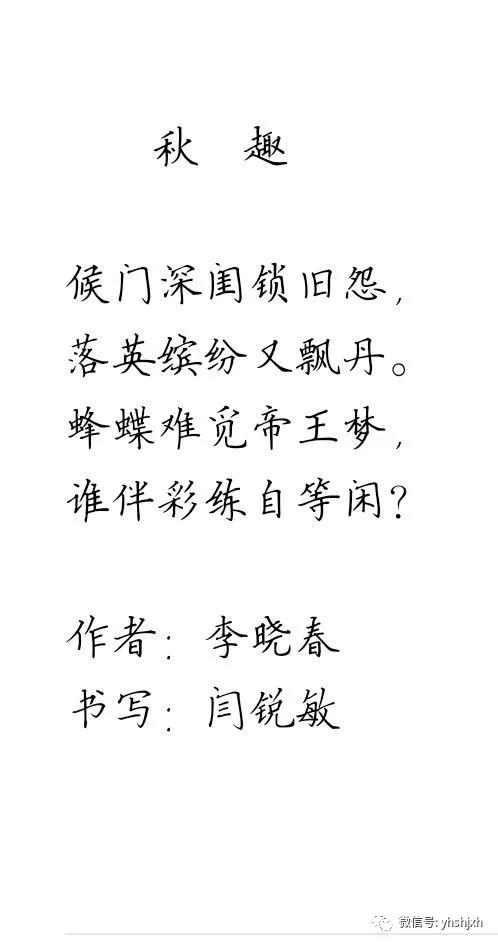 秋 趣
候门深闺锁旧怨，
落英缤纷又飘丹。
蜂蝶难觅帝王梦，
谁伴彩练自等闲？
作者：李晓春
书写：闫锐敏
微信号: yhshjxh